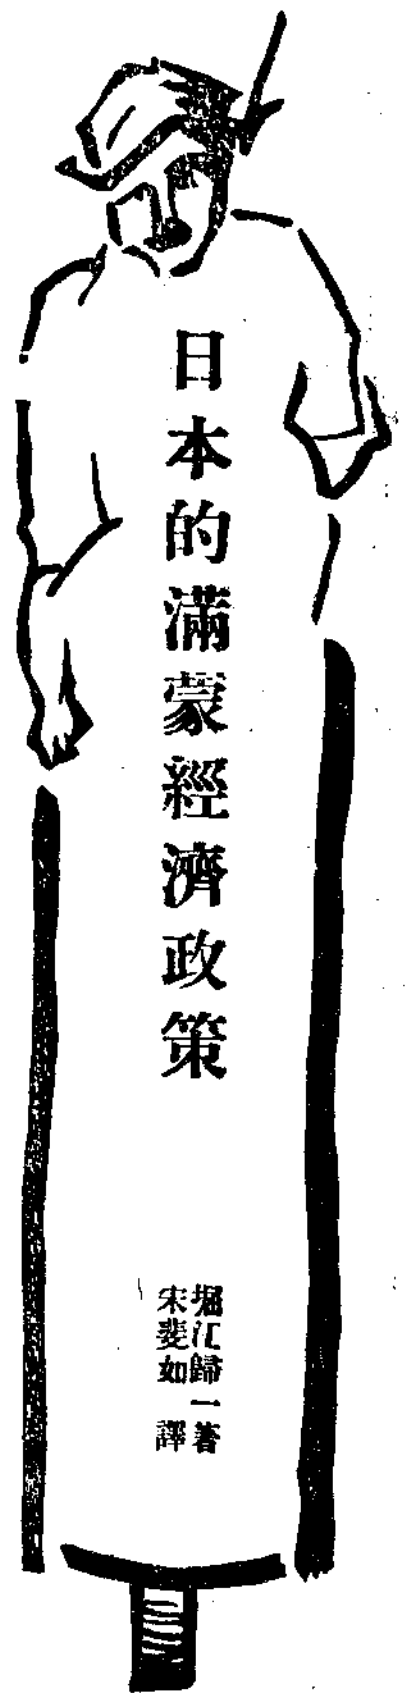 日本的滿蒙經濟政策
堀江歸一著
宋斐如譯